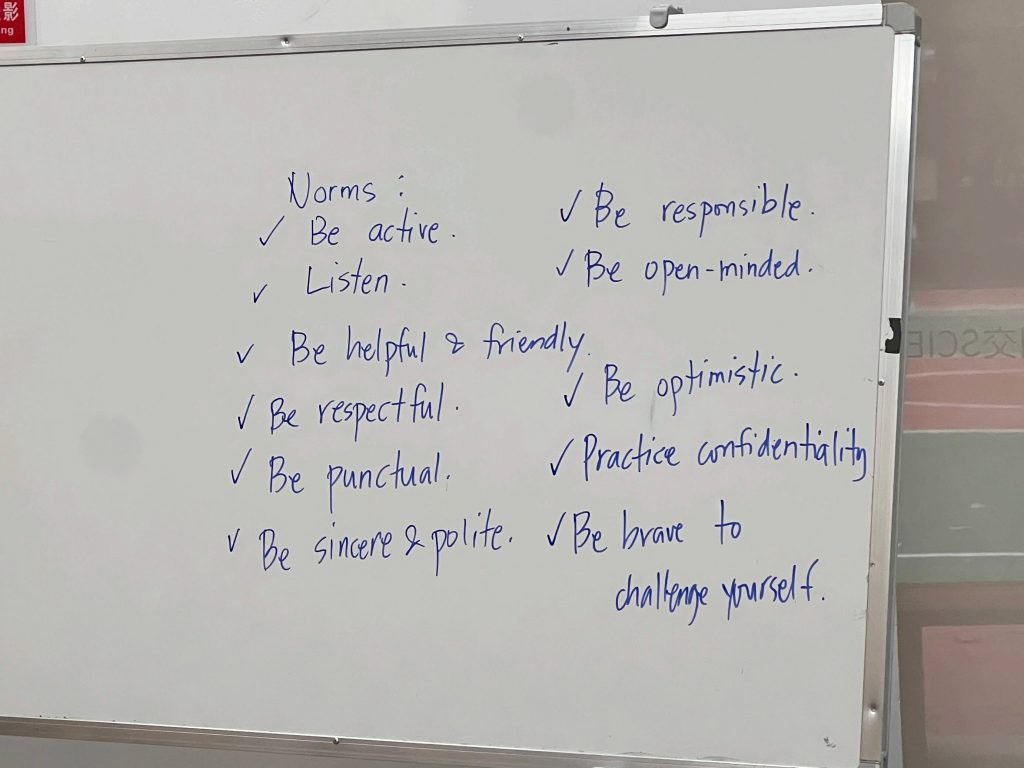 影
ng
Norms :
✓ Be active.
✓ Listen.
✓ Be helpful & friendly.
✓ Be respectful.
✓ Be punctual.
✓ Be sincere & polite.
✓ Be responsible.
✓ Be open-minded.
✓ Be optimistic.
✓ Practice confidentiality
✓ Be brave to
challenge yourself.
交SCIE